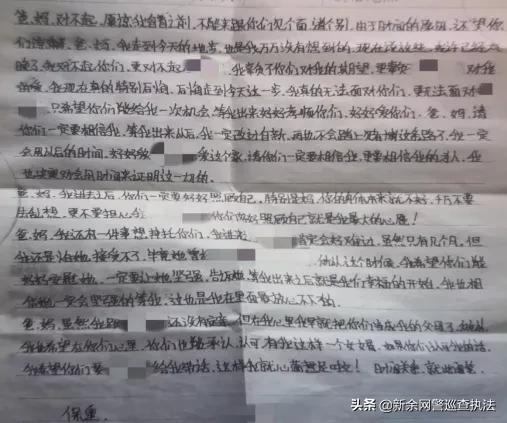 爸，妈，对不起，原谅我自首之前，不能来跟你们见个面，道个别，由于时间的原因，还望你
们谅解，爸、妈，我走到今天的地步，也是我万万没有想到的，现在说这些，或许已经太
晚了，我对不起你们，更对不起 我辜负你们对我的期望，更辜负 对我
我现在真的特别后悔，后悔走到今天这一步，我真的无法面对你们，更无法面对
只希望你们能给我一次机会，等我出来好好孝顺你们，好好爱你们，爸、妈，请
你们一定要相信我，等我出来以后，我一定改过自新，再也不会踏上赌博这条路了，我一定
会用以后的时间，好好爱 爱这个家，请你们一定要相信我，更要相信我的为人，我
也决定会用时间来证明这一切的。
爸、妈，我进去之后，你们一定要好好照顾自己，特别是妈，你的身体本来就不好，千万不要
去乱想，更不要担心我 你们好好照顾自己就是我最大的心愿！
爸、妈，我还有一件事想拜托你们，我进来 肯定会好难过，虽然只有几个月，但
我还是怕她，接受不了，毕竟她 所以这个时候，我希望你们能
好好安慰她，一定要让她坚强，告诉她，等我出来之后就是我们幸福的开始，我也相
信她一定会坚强的等我，这也是我在里面最放心不下的。
爸、妈，虽然我跟 还没有 但在心里我早就把你们当成我的父母了，
我也希望在你们心里，你们也能承认，认可有我这样一个女婿，如果你们认可我的话，
我希望你们要 给我带话，这样我就心满意足啦！
保重
头条 @新余网警巡查执法